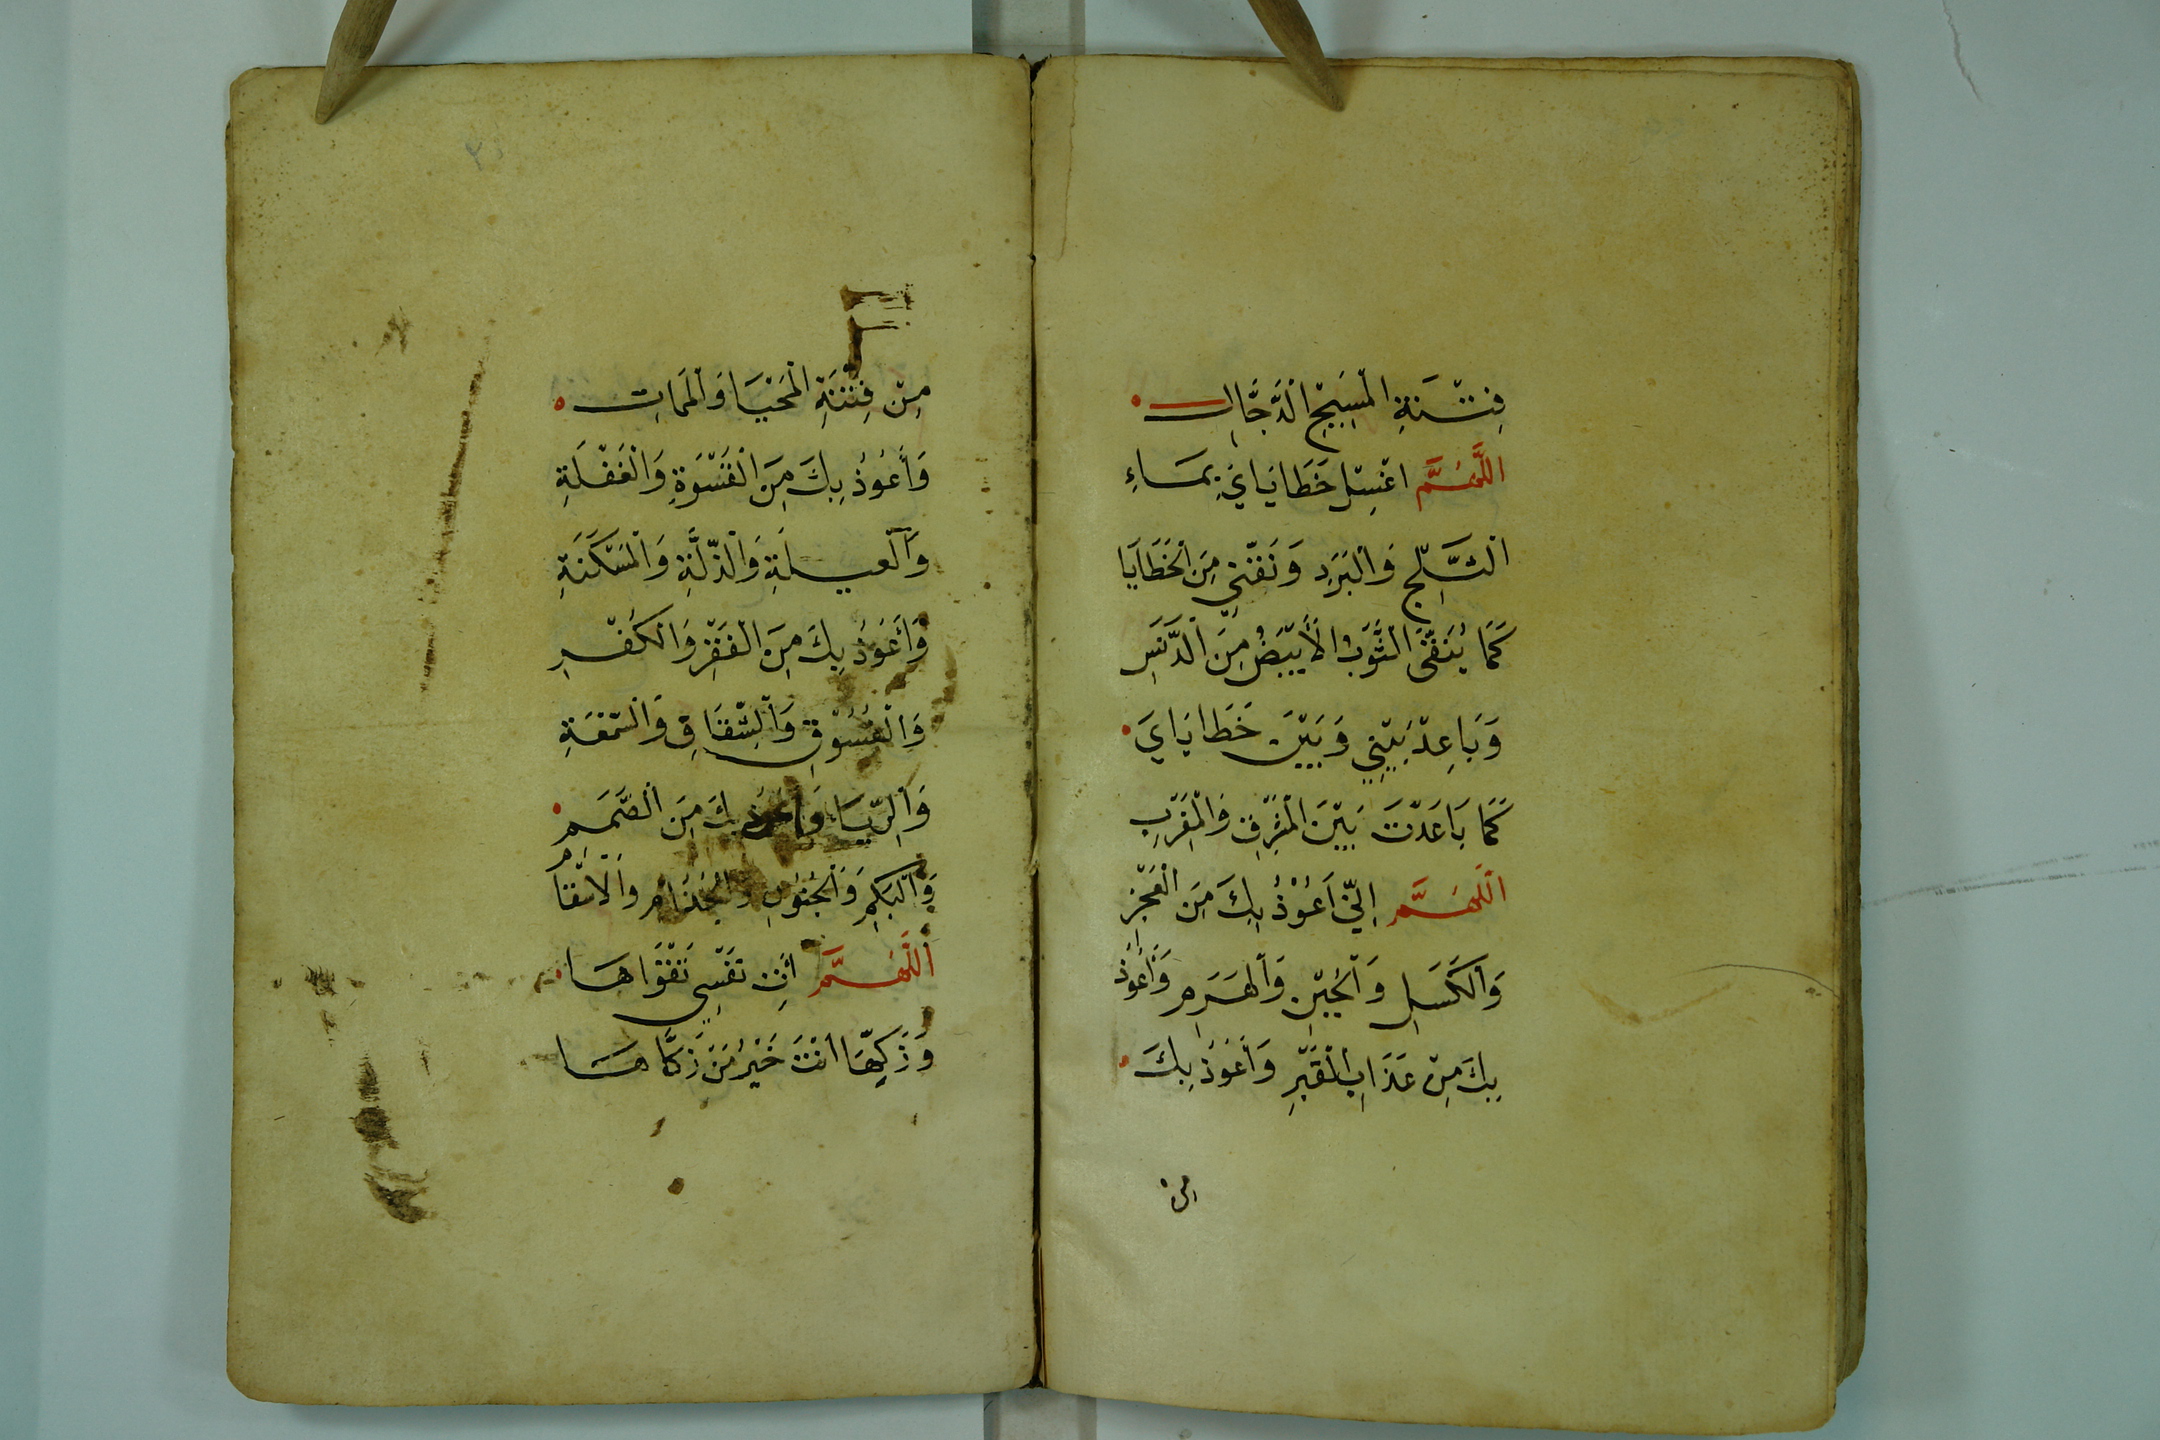 فِتْنَةِ الْمَسِيحِ الدَّجَّالِ
اللَّهُمَّ اغْسِلْ خَطَايَايَ بِمَاءِ
الثَّلْجِ وَالْبَرَدِ وَنَقِّنِي مِنَ الْخَطَايَا
كَمَا يُنَقَّى الثَّوْبُ الْأَبْيَضُ مِنَ الدَّنَسِ
وَبَاعِدْ بَيْنِي وَبَيْنَ خَطَايَايَ
كَمَا بَاعَدْتَ بَيْنَ الْمَشْرِقِ وَالْمَغْرِبِ
اللَّهُمَّ إِنِّي أَعُوْذُ بِكَ مِنَ الْعَجْزِ
وَالْكَسَلِ وَالْجُبْنِ وَالْهَرَمِ وَأَعُوذُ
بِكَ مِنْ عَذَابِ الْقَبْرِ وَأَعُوذُ بِكَ
مِنْ
مِنْ فِتْنَةِ الْمَحْيَا وَالْمَمَاتِ
وَأَعُوْذُ بِكَ مِنَ الْقَسْوَةِ وَالْغَفْلَةِ
وَالْعَيْلَةِ وَالذِّلَّةِ وَالْمَسْكَنَةِ
وَأَعُوْذُ بِكَ مِنَ الْفَقْرِ وَالْكُفْرِ
وَالْفُسُوْقِ وَالشِّقَاقِ وَالسُّمْعَةِ
وَالرِّيَاءِ وَأَعُوذُ بِكَ مِنَ الصَّمَمِ
وَالْبَكَمِ وَالْجُنُوْنِ وَالْجُذَامِ وَالْأَسْقَامِ
اللَّهُمَّ آتِ نَفْسِي تَقْوَاهَا
وَزَكِّهَا أَنْتَ خَيْرُ مَنْ زَكَّاهَا